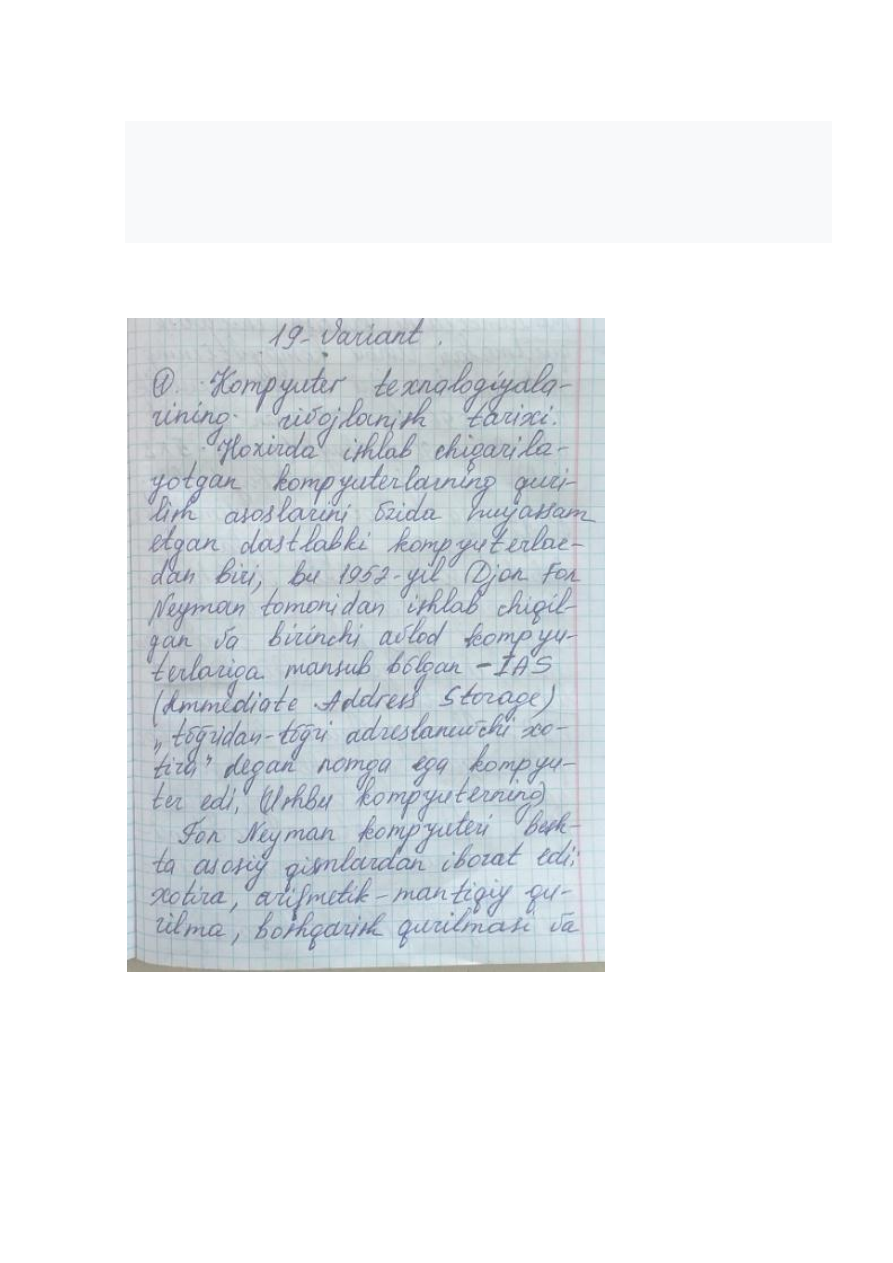 19-Variant.
① Kompyuter texnalogiyala-
rining rivojlanish tarixi.
Hozirda ishlab chiqarila-
yotgan kompyuterlarning quri-
lish asoslarini õzida mujassam
etgan dastlabki kompyuterlar-
dan biri, bu 1952-yil Djon Fon
Neyman tomonidan ishlab chiqil-
gan va birinchi avlod kompyu-
terlariga mansub bõlgan - IAS
(Immediate Address Storage)
„tõg̃ridan-tõg̃ri adreslanuvchi xo-
tira" degan nomga ega kompyu-
ter edi, (Ushbu kompyuterning)
Fon Neyman kompyuteri besh-
ta asosiy qismlardan iborat edi;
xotira, arifmetik-mantiqiy qu-
rilma, boshqarish qurilmasi va